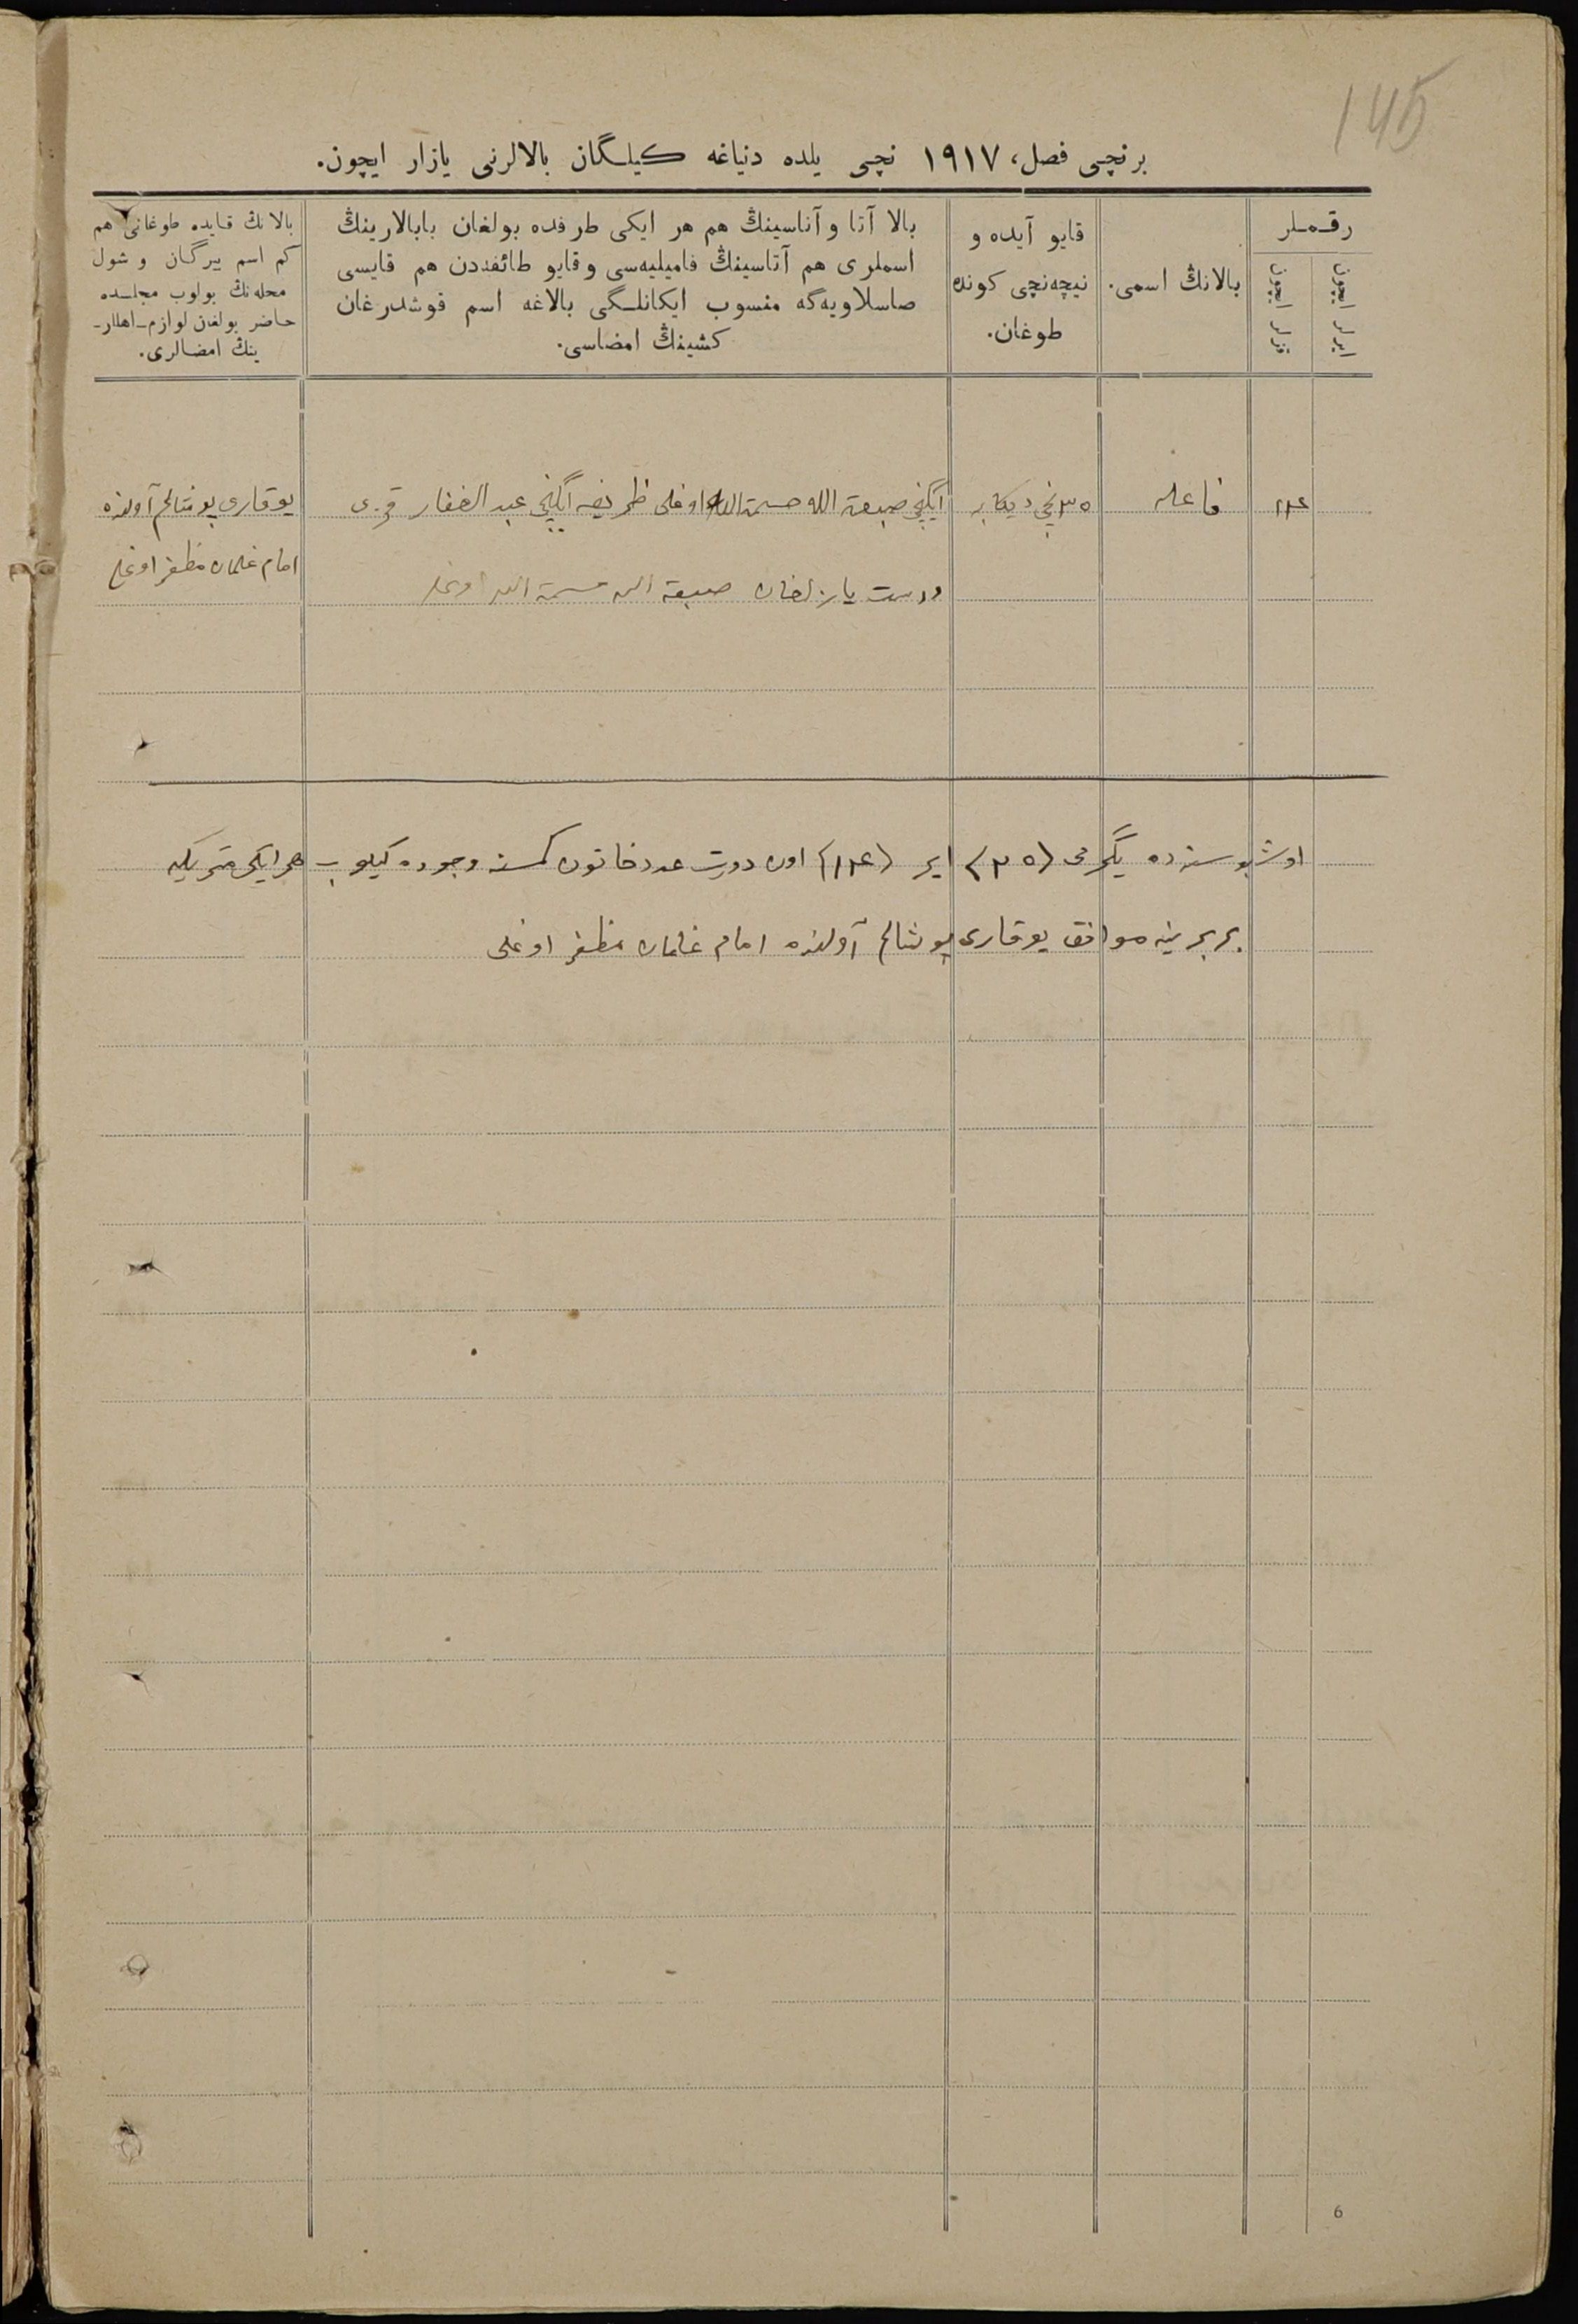 145
برنچی فصل، ١٩١٧ نچی یلده دنیاغه کیلـگان بالالرنی یازار ایچون.
رقـملر
ایرلر ایچون
قزلر ایچون
بالانڭ اسمی.
قایو آیده و
نیچه‌نچی کونده
طوغان.
بالا آتا و آناسینڭ هم هر ایکی طرفده بولغان بابالارینڭ
اسملری هم آتاسینڭ فامیلیه‌سی و قایو طائفه‌دن هم قایسی
صاسلاویه‌گه منسوب ایکانلـگی بالاغه اسم قوشدرغان
کشینڭ امضاسی.
بالانڭ قایده طوغانی هم
کم اسم بیرگان و شول
محله‌نڭ بولوب مجلسده
حاضر بولغان لوازم-اهللر-
ینڭ امضالری.
١٤ فاعله ٢٥نچی دیکابر ایگنچی صبعة الله حسمة الله اوغلی ظریفه ایگنچی عبد الغفار قزی یوقاری یوشالم آولنده
درست یازلغان صبعة الله حسمة الله اوغلی امام غلمان مظفر اوغلی
اوشبو سنه‌ده یگرمی (٢٥) ایر (١٤) اون دورت عدد خاتون کمسنه وجوده کیلوب هر ایکی متریکه
بربرینه موافق یوقاری یوشالم آولنده امام غلمان مظفر اوغلی
6